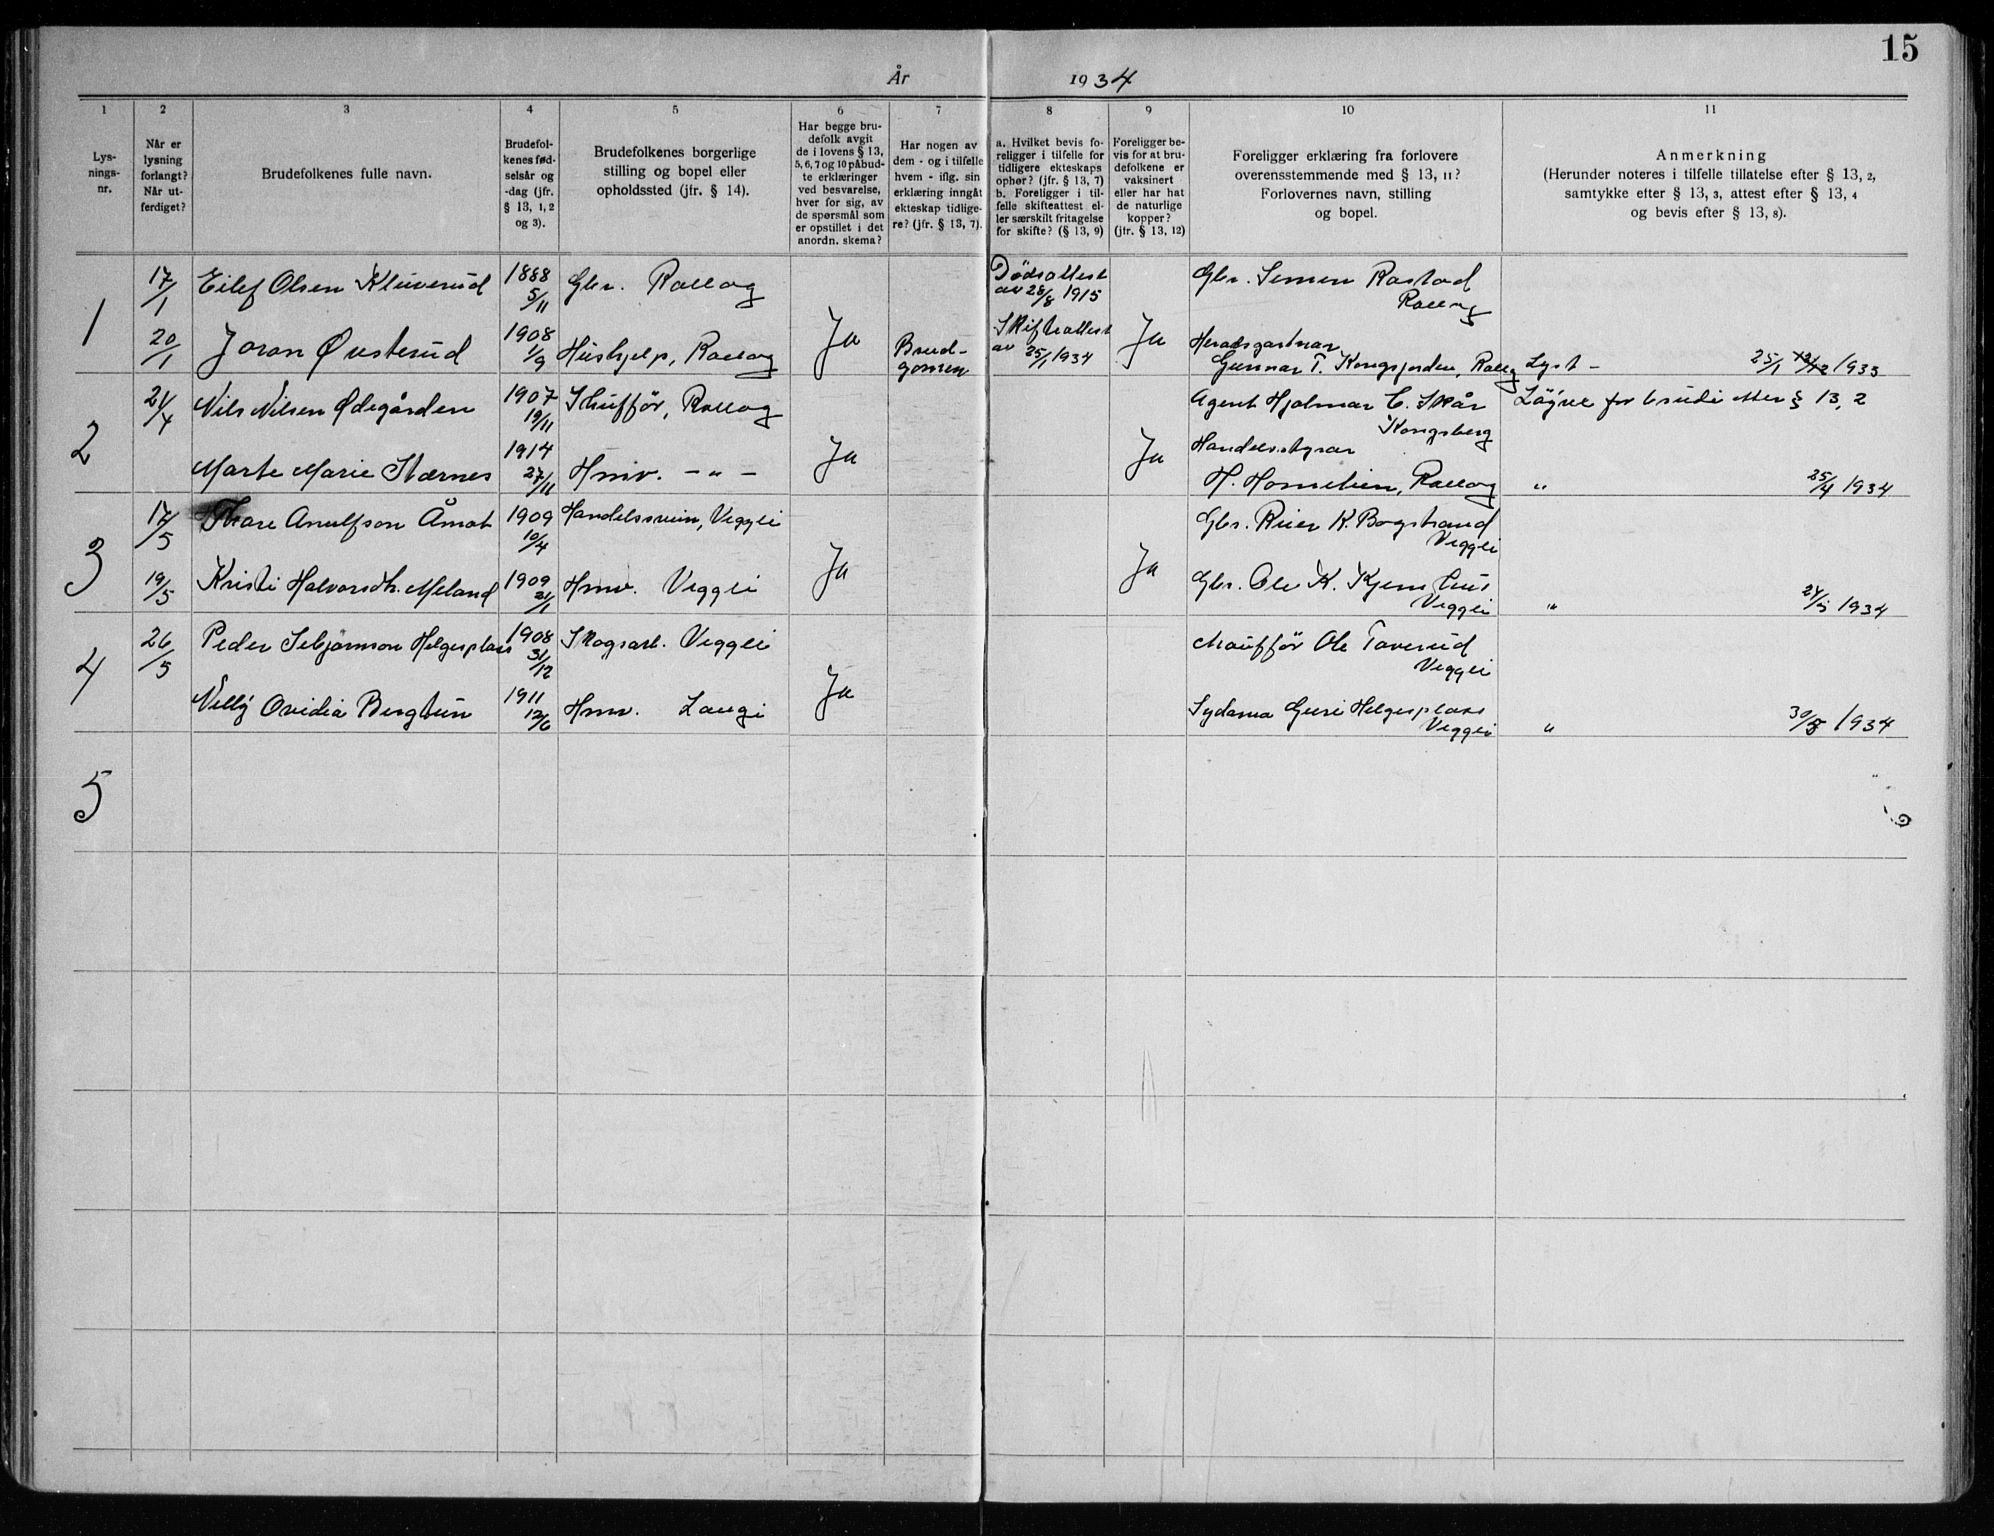 15
År 1934
1 2 3 4 5 6 7 8 9 10 11
Lys-
nings-
nr.
Når er
lysning
forlangt?
Når ut-
ferdiget?
Brudefolkenes fulle navn.
Brudefol-
kenes fød-
selsår og
-dag (jfr.
§ 13, 1, 2
og 3).
Brudefolkenes borgerlige
stilling og bopel eller
opholdssted (jfr. § 14).
Har begge bru-
defolk avgit
de i lovens § 13,
5, 6, 7 og 10 påbud-
te erklæringer
ved besvarelse,
hver for sig, av
de spørsmål som
er opstillet i det
anordn. skema?
Har nogen av
dem - og i tilfelle
hvem - iflg. sin
erklæring inngåt
ekteskap tidlige-
re? (jfr. § 13, 7).
a. Hvilket bevis fo-
religger i tilfelle for
tidligere ekteskaps
ophør? (jfr. § 13, 7)
b. Foreligger i til-
felle skifteattest el-
ler særskilt fritagelse
for skifte? (§ 13, 9)
Foreligger be-
vis for at bru-
defolkene er
vaksinert
eller har hat
de naturlige
kopper?
(jfr. § 13, 12)
Foreligger erklæring fra forlovere
overensstemmende med § 13, 11?
Forlovernes navn, stilling
og bopel.
Anmerkning
(Herunder noteres i tilfelle tillatelse efter § 13, 2,
samtykke efter § 13, 3, attest efter § 13, 4
og bevis efter § 13, 8).
1
17/1 Eilef Olsen Kluverud 1888 5/11 Gbr. Rollag
Dødsattest
av 28/8 1915
Gbr. Simen Rastad
Rollag
20/1 Joran Øusterud 1908 1/9 Hushjelp, Rollag Ja Brud-
gomen
Skifteattest
av 25/1 1934
Ja Heradsgartnar
Gunnar T. Kongsjorden, Rollag Lyst - 25/1 1935
2
21/4 Nils Nilsen Ødegården 1907 19/11 Shufför, Rollag
Agent Hjalmar C. Skår
Kongsberg
Løyve for brudi etter § 13, 2
Marte Marie Stærnes 1914 27/11 Hmv. - " - Ja Ja
Handelsstyrar
H. , Rollag " 25/4 1934
3
17/5 Thore Arnulfson Åmot 1909 10/4 Handelssvein, Veggli
Gbr. Reier K. Bogstrand
Veggli
19/5 Kristi Halvorsdtr. Meland 1909 21/1 Hmv. Veggli Ja Ja
Gbr. Ole K. Kjemhus
Veggli " 24/5 1934
4
26/5 Peder Sebjørnson Helgesplass 1908 31/12 Skogsarb. Veggli
Shauffør Ole Toverud
Veggli
Nelly Ovidia Bergtun 1911 12/6 Hmv. Langi Ja
Sydama Guri Helgesplass
Veggli " 30/5 1934
5